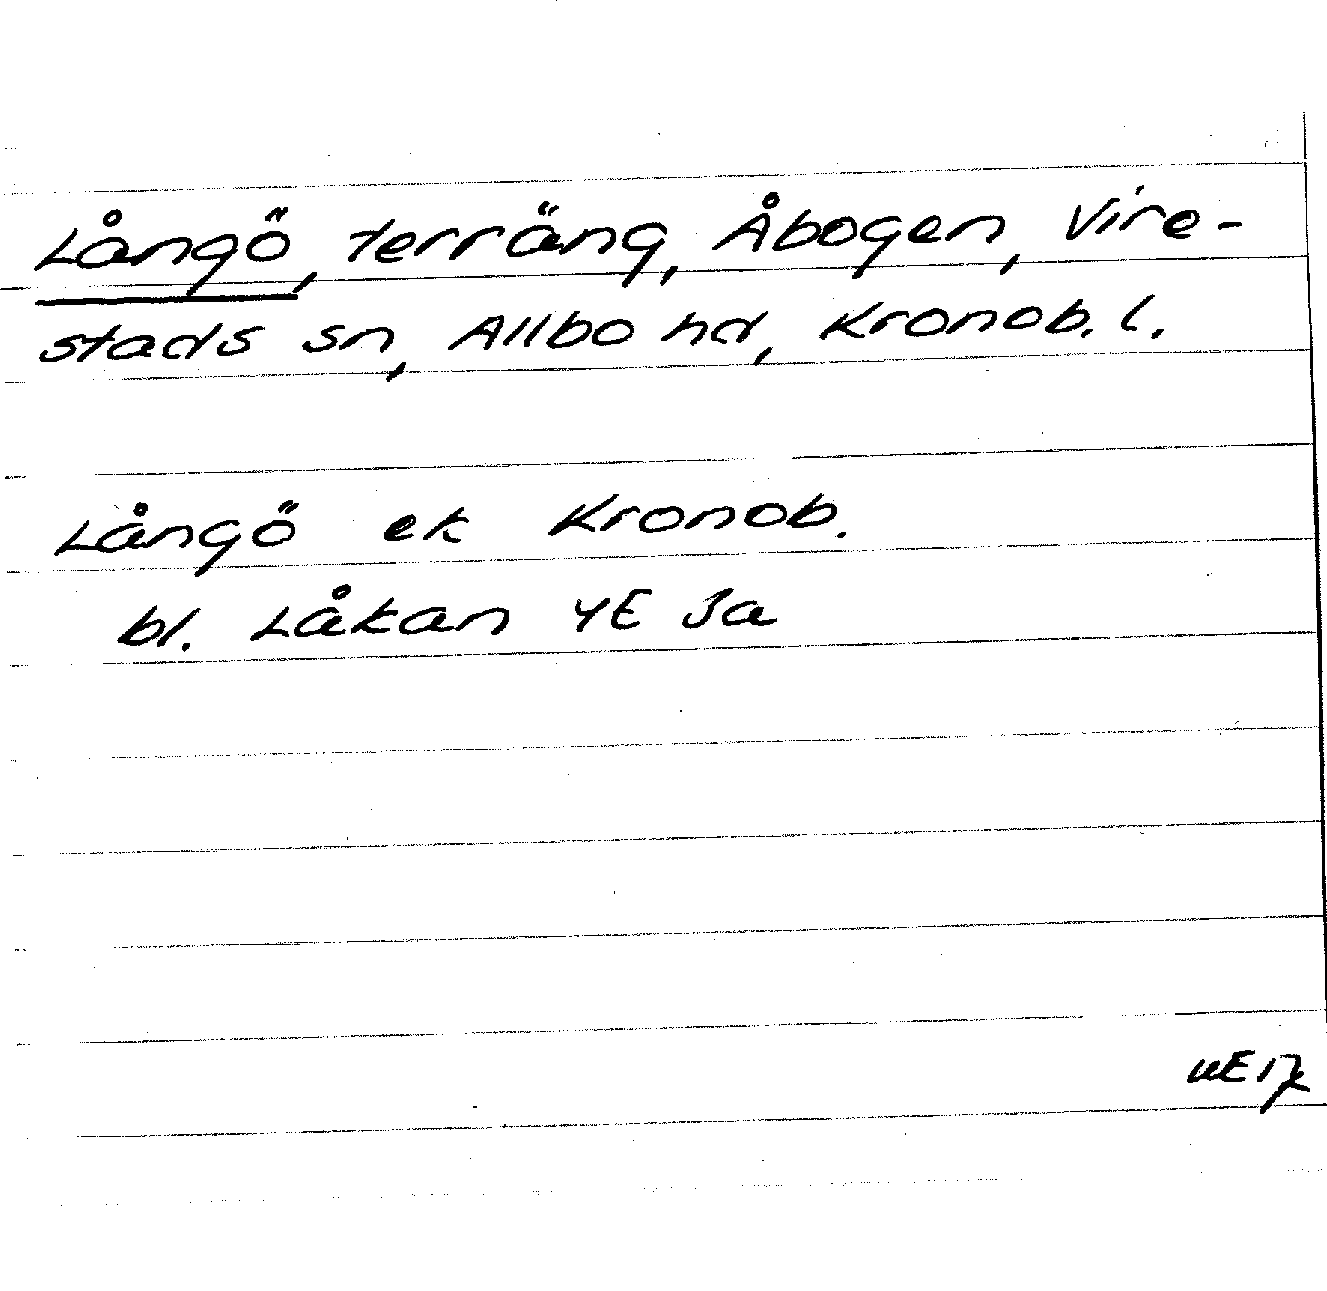 Långö, terräng, Åbogen, Vire-
stads sn, Allbo hd, Kronob. l.
Långö ek Kronob.
bl. Låkan 4E 3a